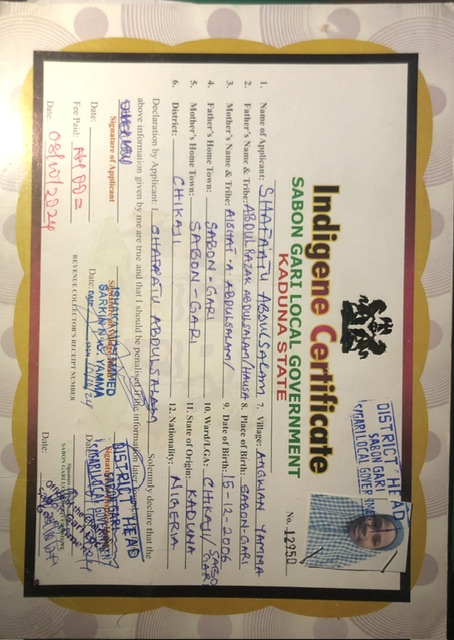 Indigene Certificate
SABON GARI LOCAL GOVERNMENT
KADUNA STATE
DISTRICT HEAD
SABON GARI
No. 12950
1. Name of Applicant: SHAFA'ATU ABDULSALAM 7. Village: ANGWAN YAMMA
2. Father's Name & Tribe: ABDULRAZAK ABDULSALAM/HAUSA 8. Place of Birth: SABON-GARI
3. Mother's Name & Tribe: AISHAT A. ABDULSALAM/ 9. Date of Birth: 15-12-2006
4. Father's Home Town: SABON-GARI 10. Ward/LGA: CHIKAJI/SABO GARI
5. Mother's Home Town: SABON-GARI 11. State of Origin: KADUNA
6. District: CHIKAJI 12. Nationality: NIGERIA
Declaration by Applicant: I, ABDULSALAM Solemnly declare that the
above information given by me are true and that I should be penalised if the information later
Signature of Applicant
ISHAKA MOHAMMED
SARKIN ANG. YAMMA
DISTRICT HEAD
SABON GARI
Date:
Date:
Fee Paid:
REVENUE COLLECTOR'S RECEIPT NUMBER
Date 08/10/2024
Date: